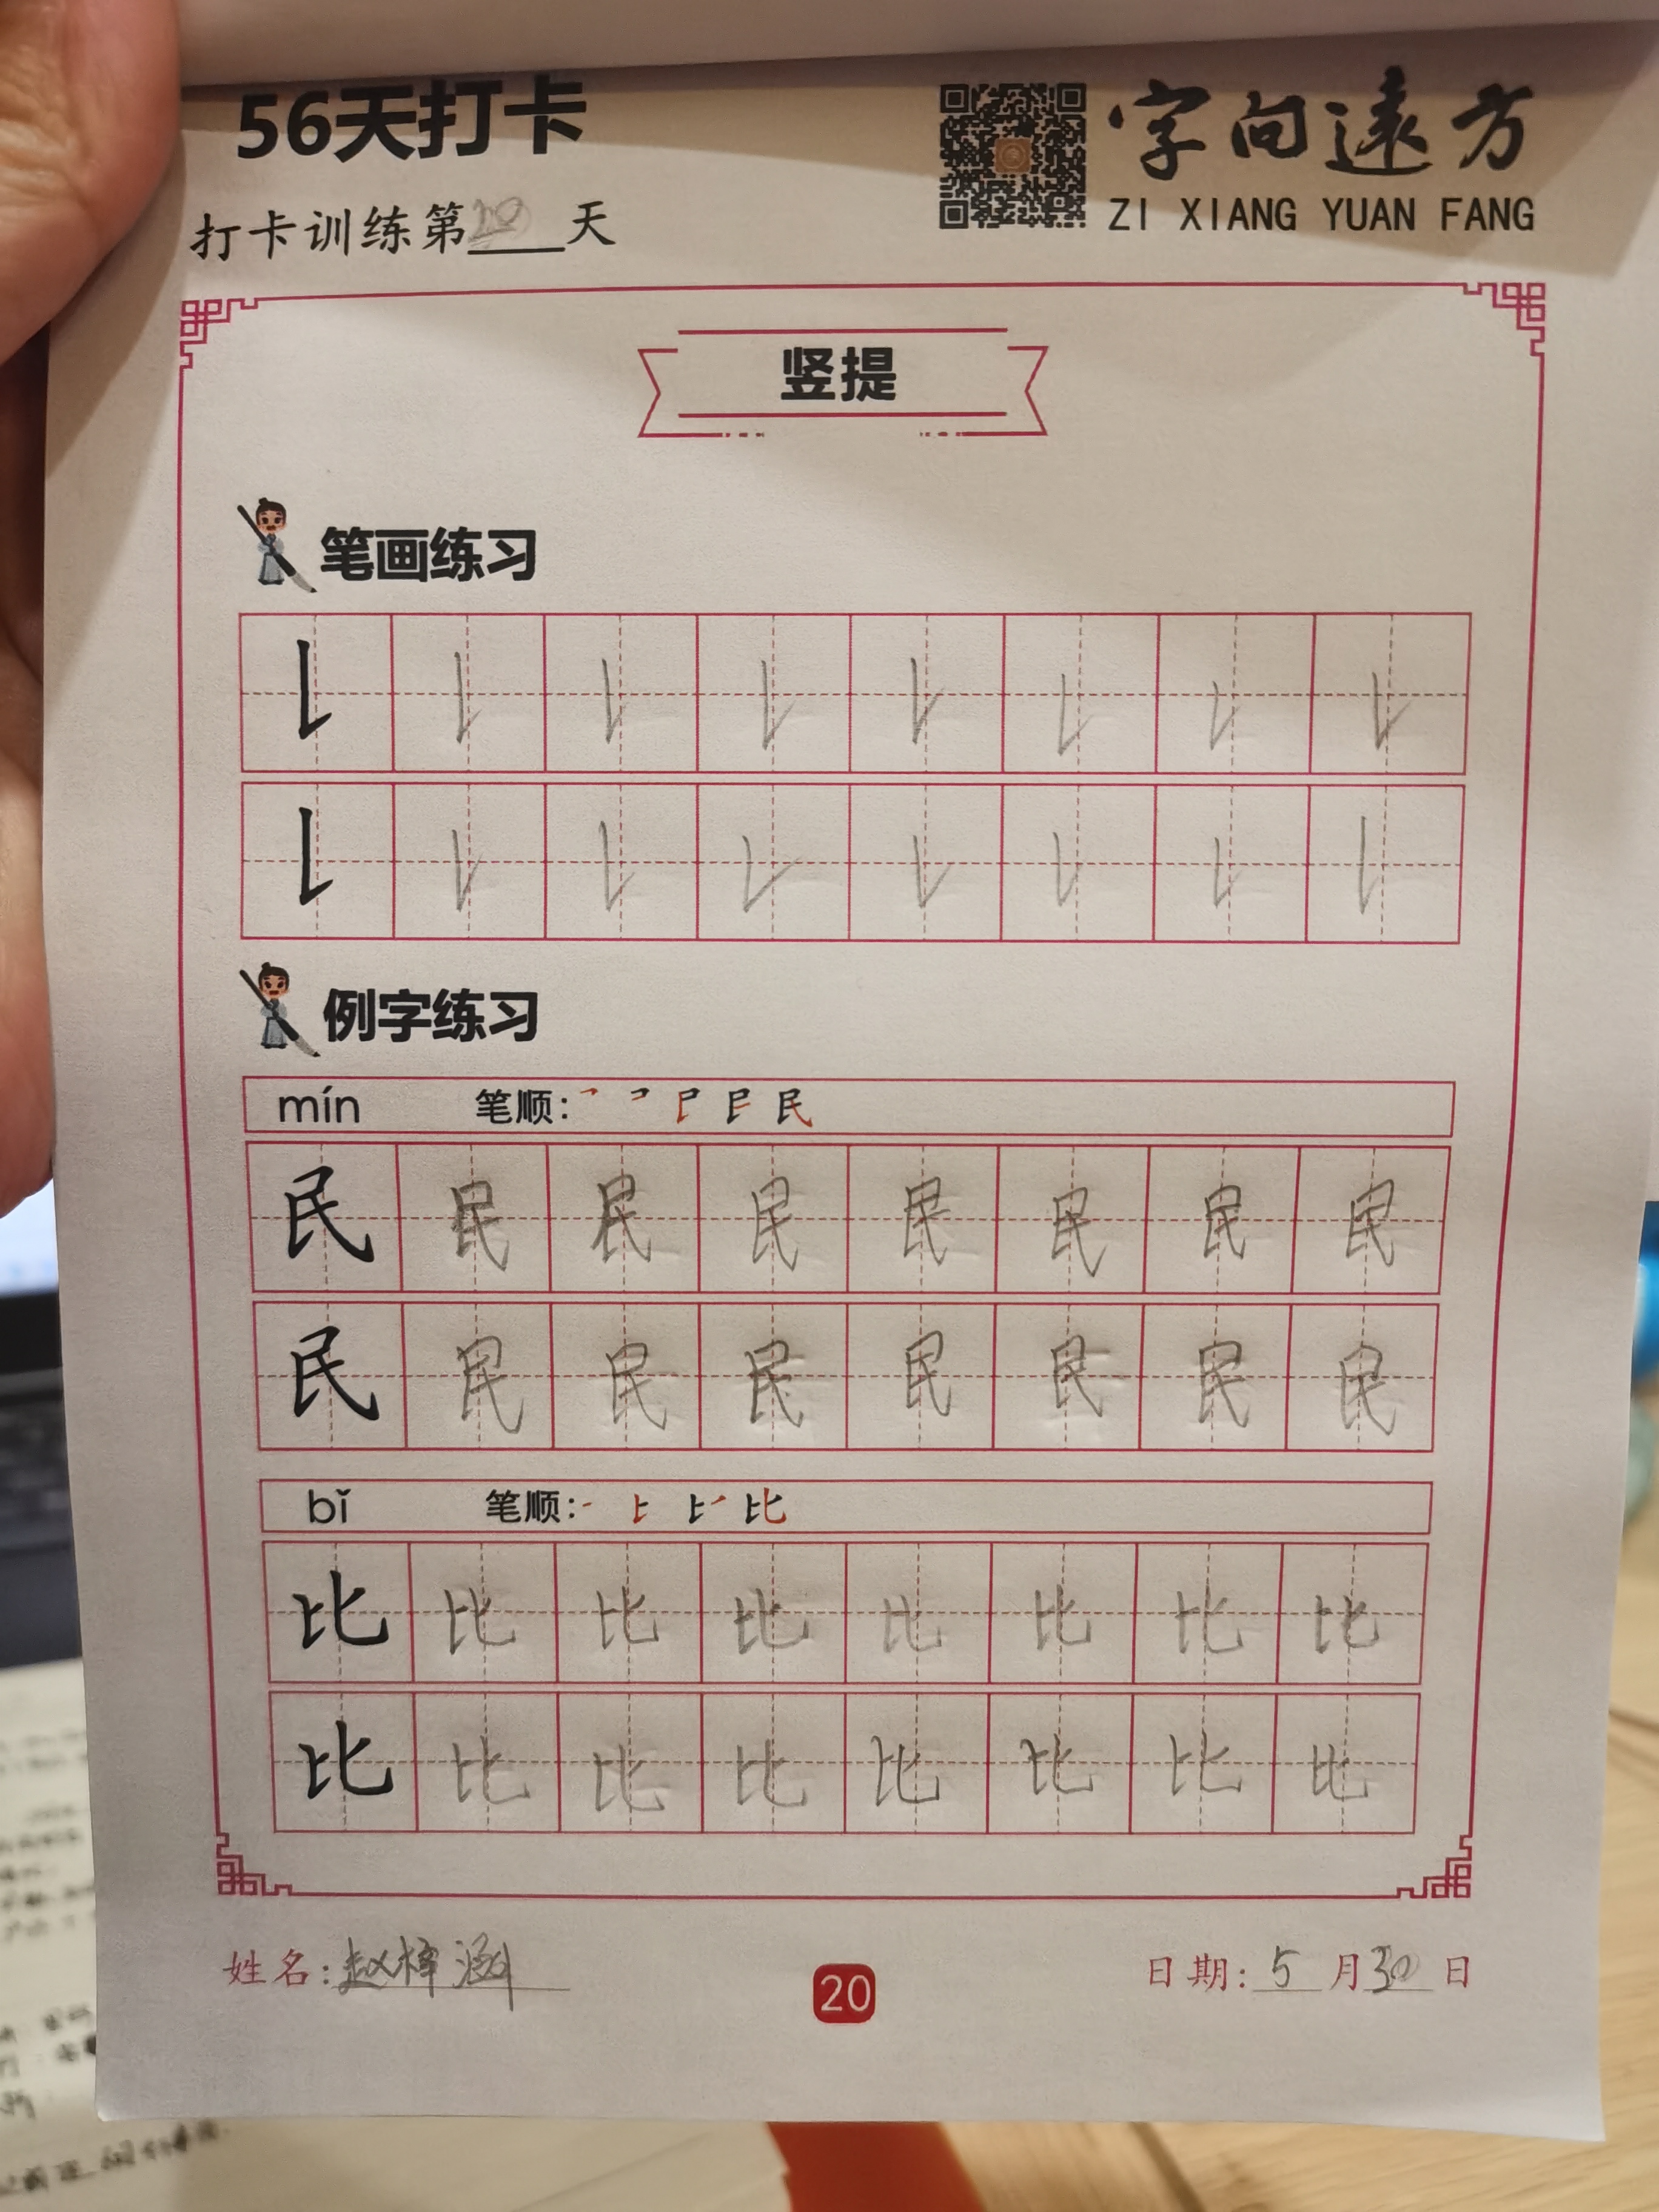 56天打卡
字向遠方
ZI XIANG YUAN FANG
打卡训练第20天
竖提
笔画练习
例字练习
mín 笔顺:
民 民 民 民 民 民 民 民
民 民 民 民 民 民 民 民
bǐ 笔顺:
比 比 比 比 比 比 比 比
比 比 比 比 比 比 比 比
姓名:赵梓涵
20
日期:5月30日